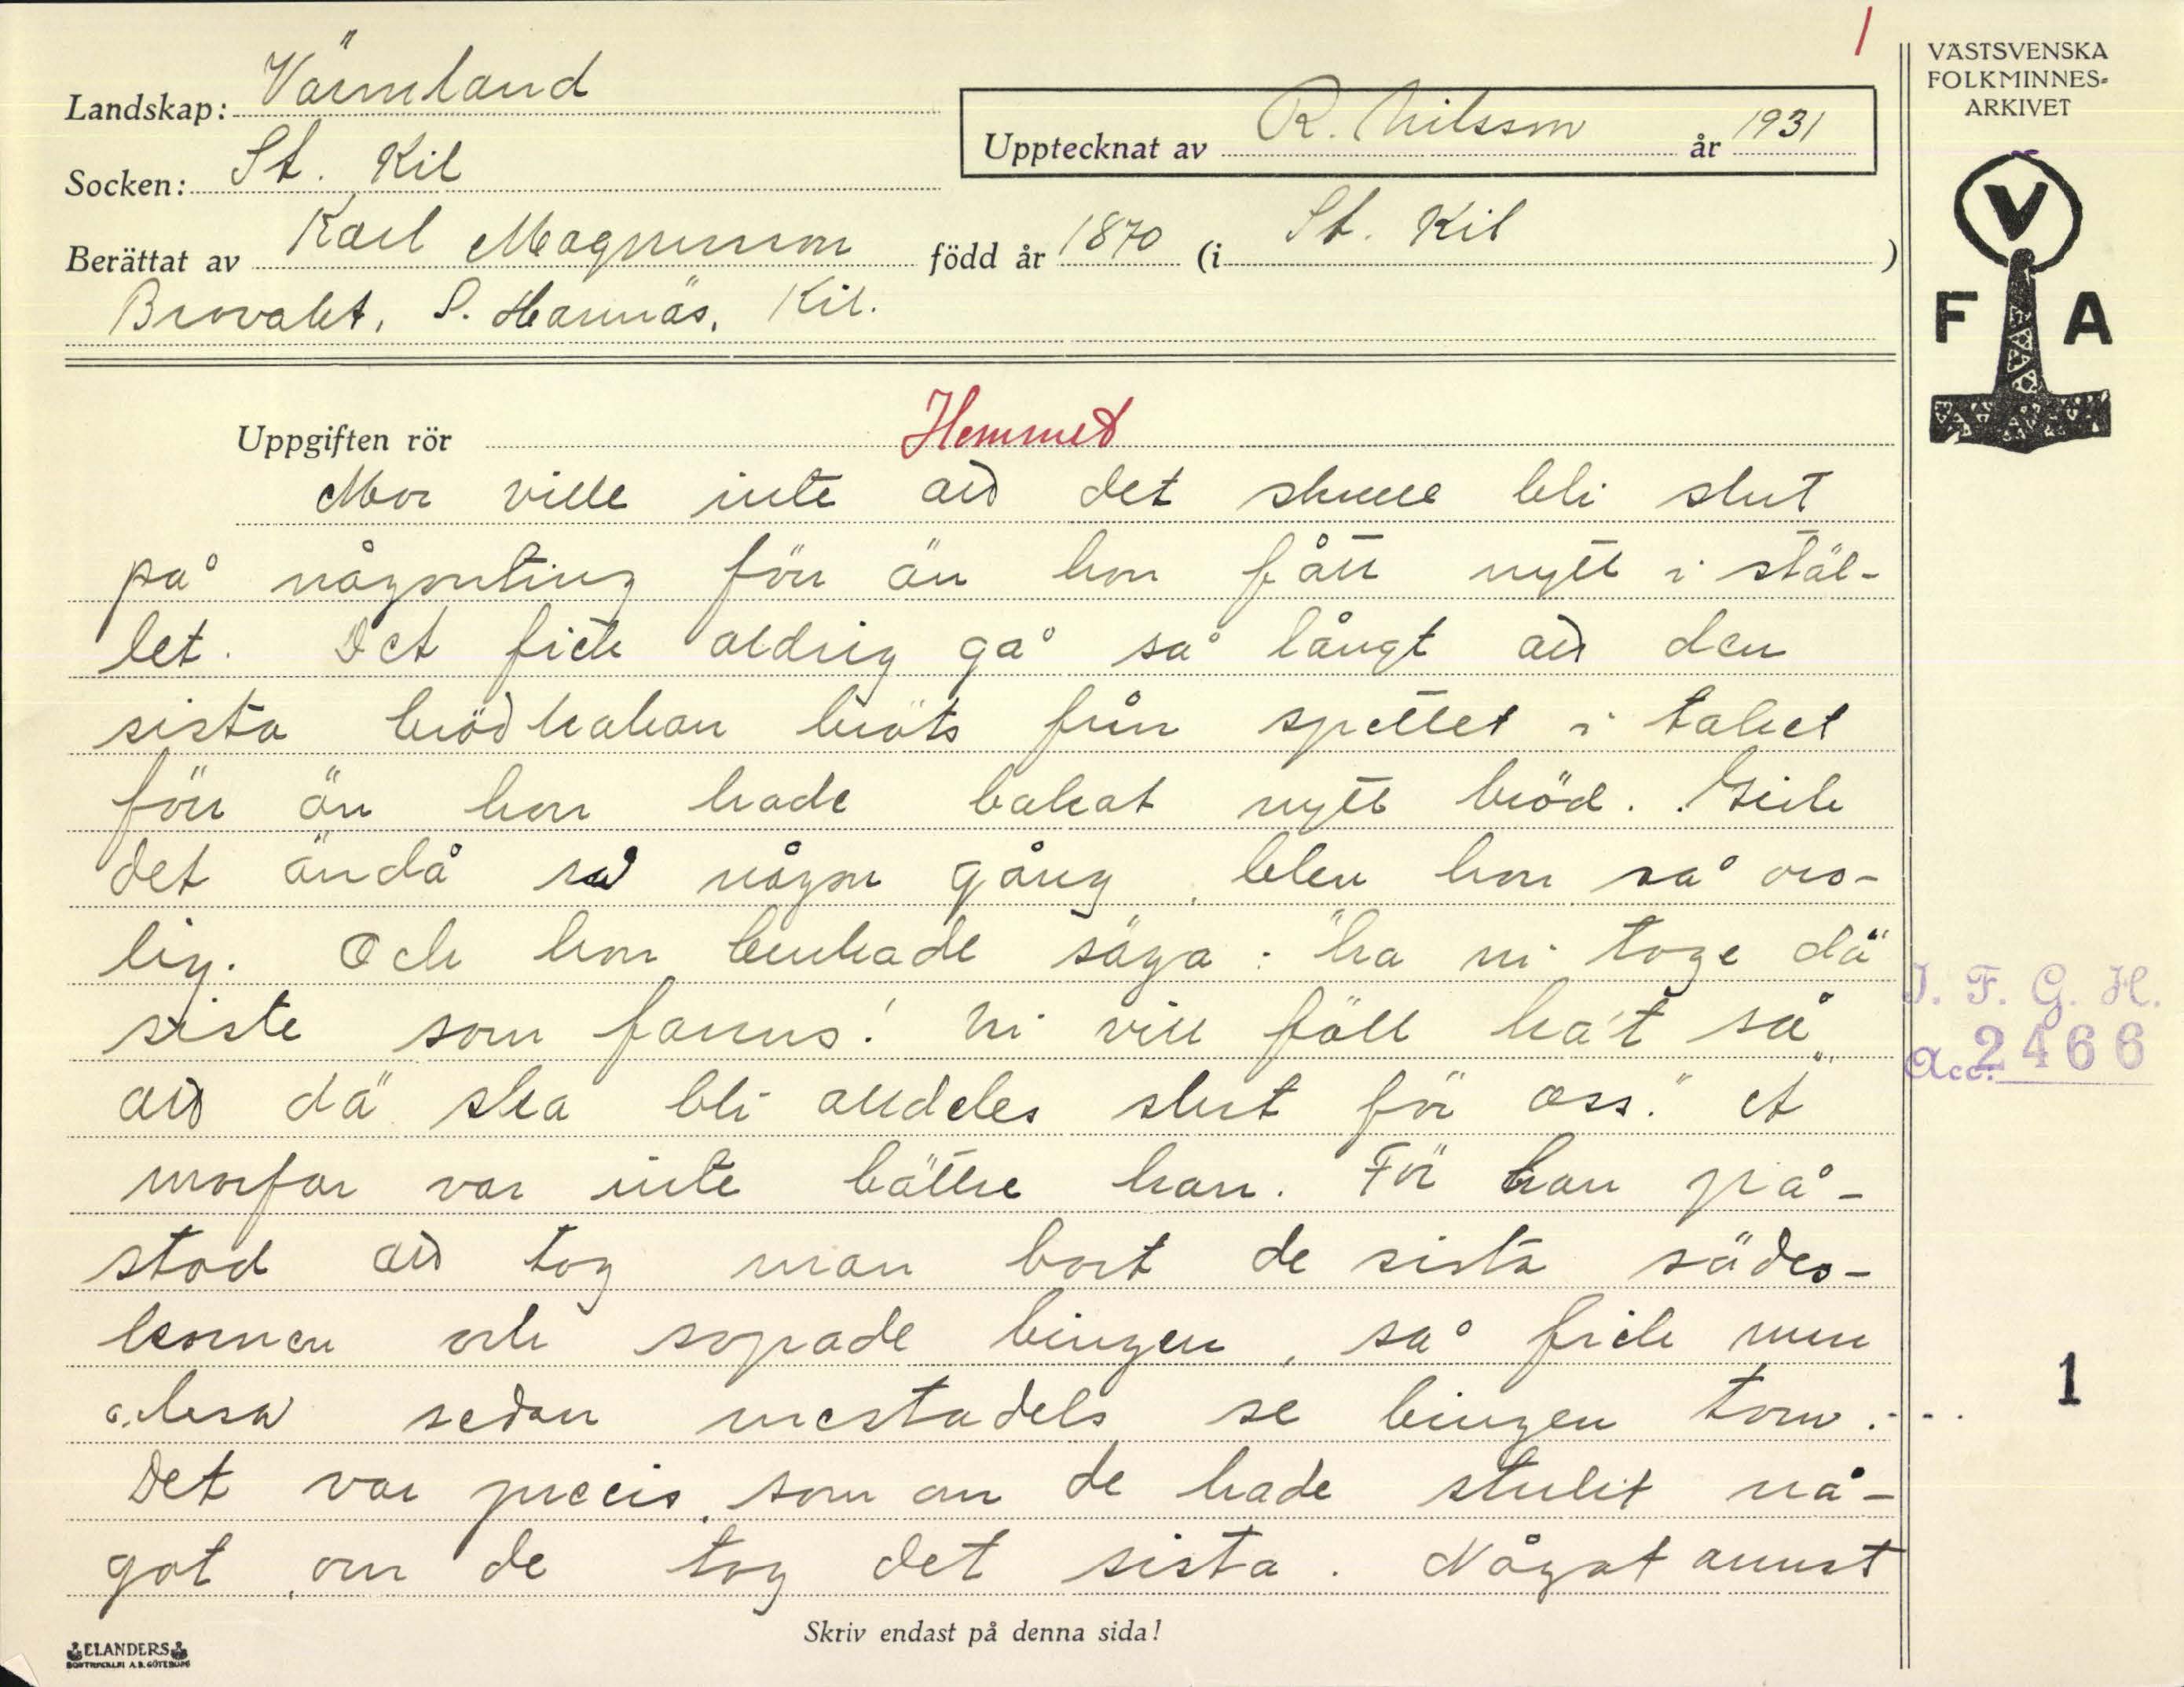 1
VÄSTSVENSKA
FOLKMINNES-
ARKIVET
Landskap: Värmland
Upptecknat av R. Nilsson år 1931
Socken: St. Kil
Berättat av Karl Magnusson född år 1870 (i St. Kil)
Brovalet, S. Hannäs, Kil.
V
F A
Uppgiften rör Hemmet
Mor ville inte att det skulle bli slut
på någonting förr än hon fått nytt i stäl-
let. Det fick aldrig gå så långt att den
sista brödkakan bröts från spettet i taket
förr än hon hade bakat nytt bröd. Gick
det ändå så någon gång, blev hon så oro-
lig. Och hon brukade säga: "ha ni toge dä
siste som fanns! Ni vill fäll ha't så,
att dä ska bli alldeles slut för oss." Å
morfar var inte bättre han. För han på-
stod att tog man bort de sista sädes-
kornen och sopade bingen, så fick man
också sedan mestadels se bingen tom.
Det var precis som om de hade stulit nå-
got, om de tog det sista. Något annat
J. F. G. H.
Acc. 2466
1
Skriv endast på denna sida!
ELANDERS
BOKTRYCKERI A.B. GÖTEBORG